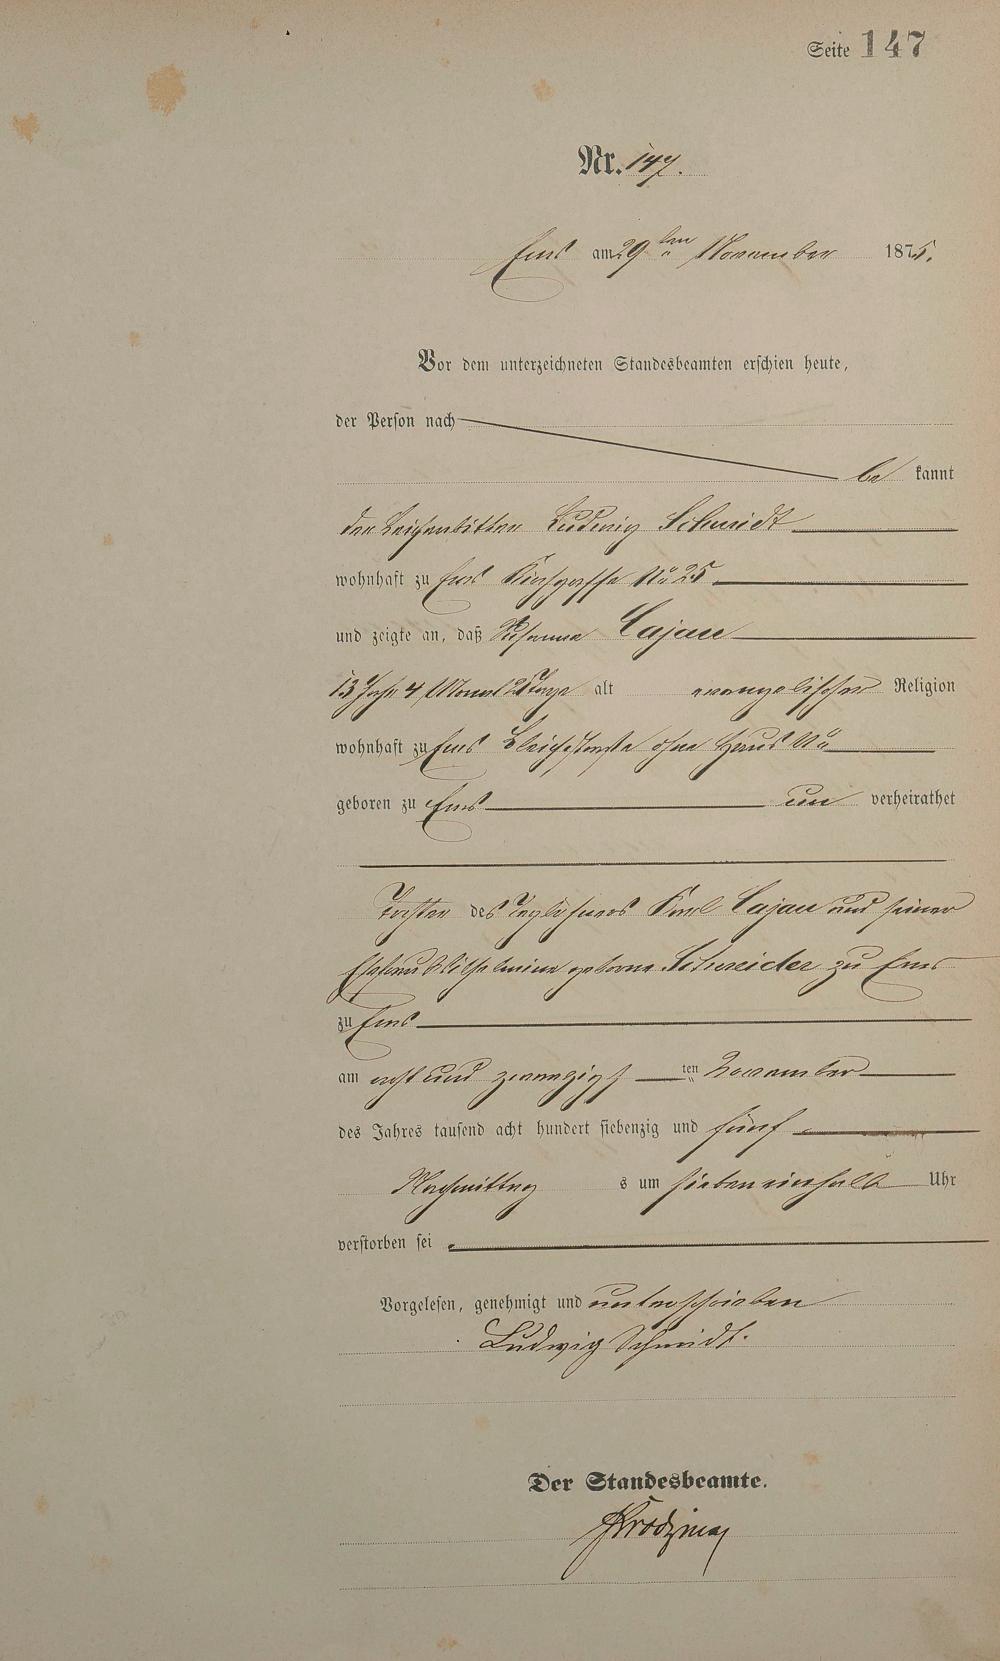 Seite 147
Nr. 147.
Ems am 29ten November 1875.
Vor dem unterzeichneten Standesbeamten erschien heute,
der Person nach
be kannt
der Leichenbitter Ludwig Schmidt
wohnhaft zu Ems Kirchgasse No 25
und zeigte an, daß Susanna Cajau
13 Jahr 4 Monat Tage alt evangelischer Religion
wohnhaft zu Ems Bleichstraße ohne Haus No
geboren zu Ems un verheirathet
Tochter des Taglöhners Karl Cajau und seiner
Ehefrau Wilhelmine geborne Schneider zu Ems
zu Ems
am acht und zwanzigs ten November
des Jahres tausend acht hundert siebenzig und fünf
Nachmittag s um sieben einhalb Uhr
verstorben sei
Vorgelesen, genehmigt und unterschrieben
Ludwig Schmidt.
Der Standesbeamte.